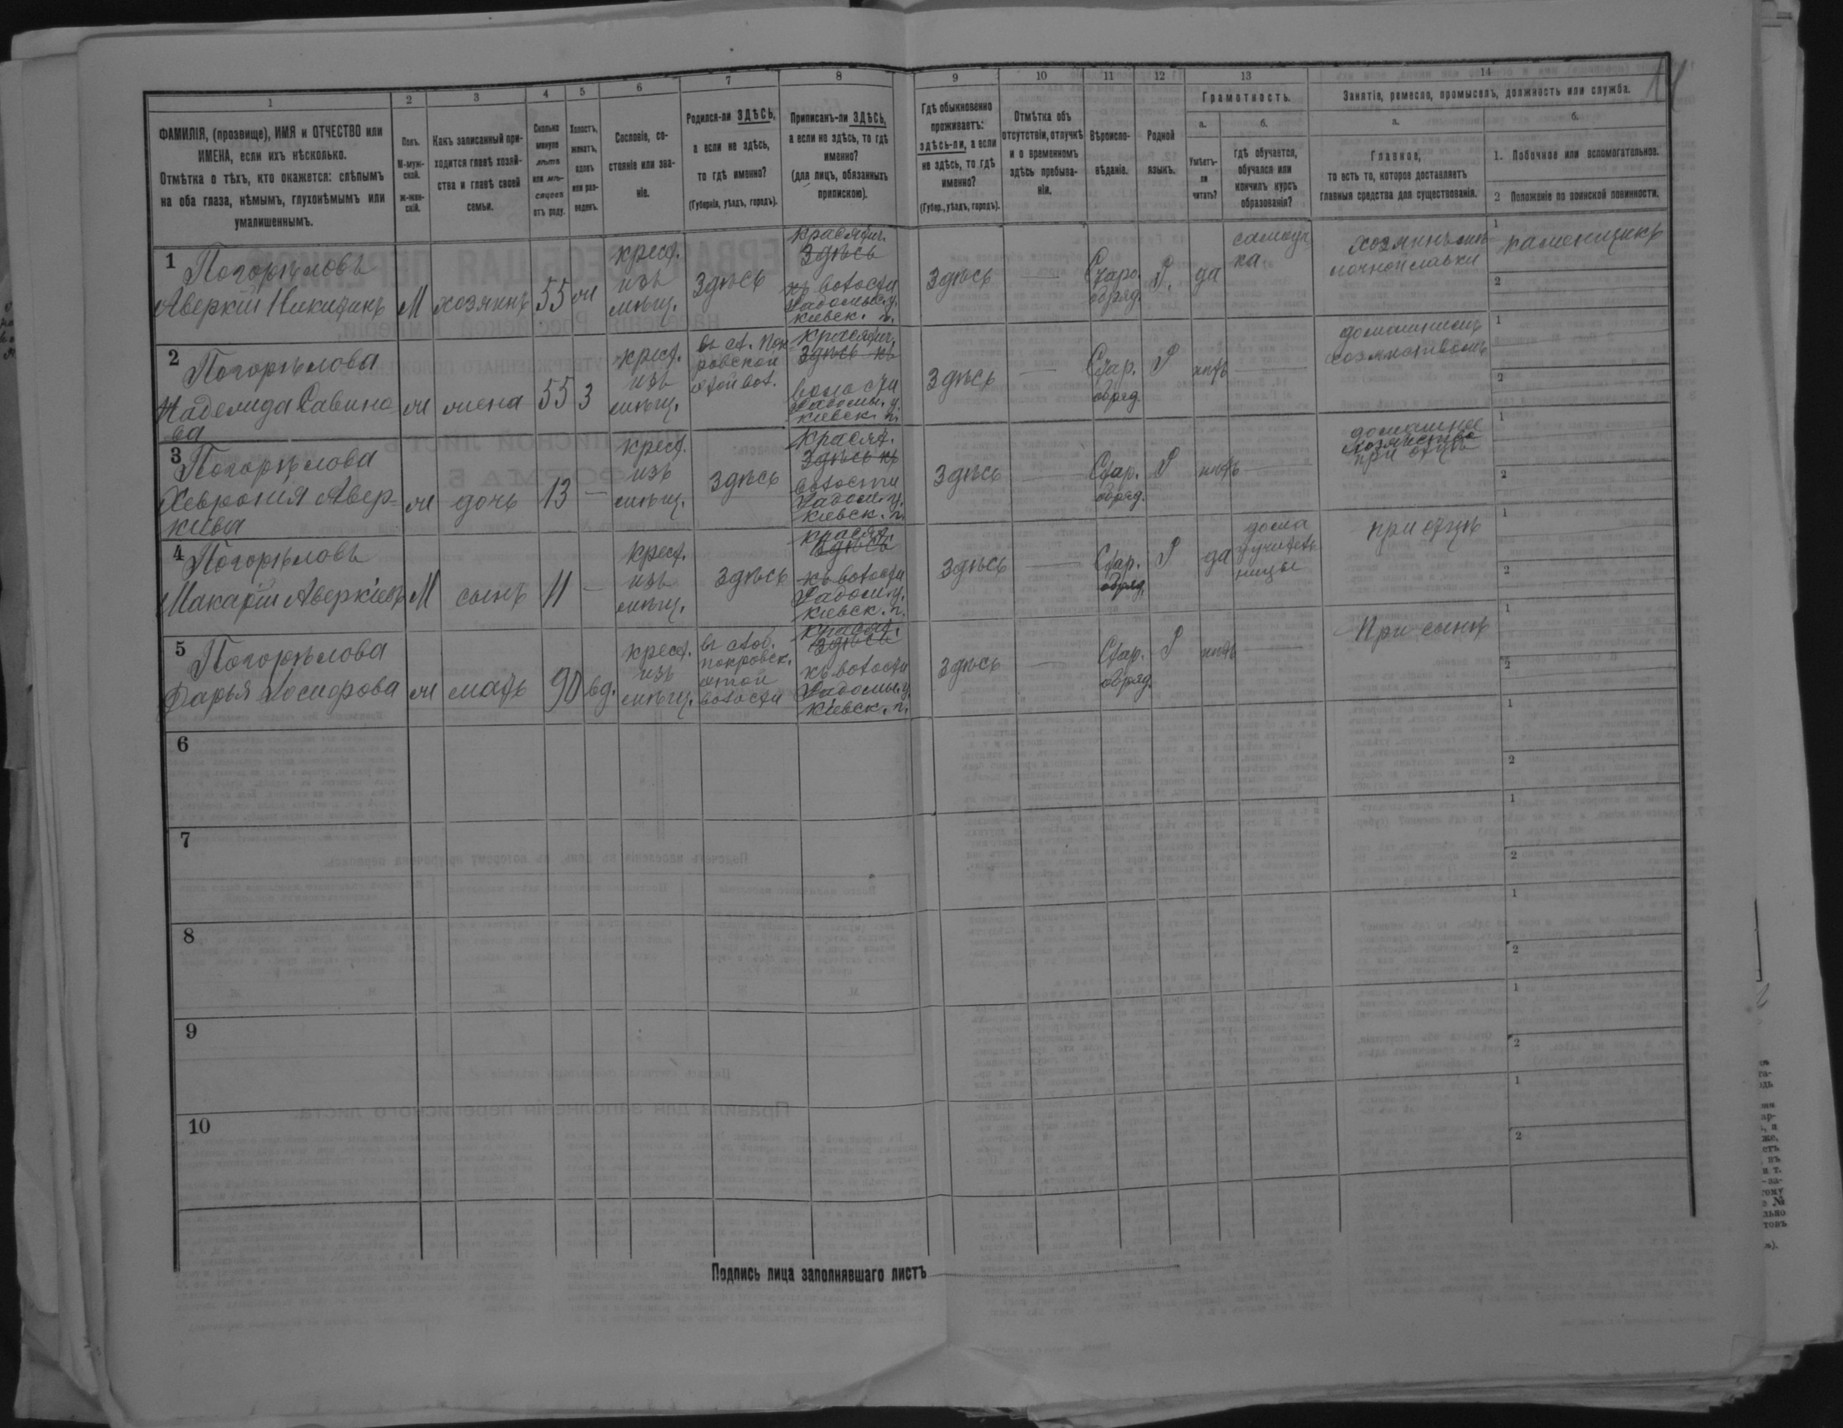 1 2 3 4 5 6 7 8 9 10 11 12 13 14
ФАМИЛІЯ, (прозвище), ИМЯ и ОТЧЕСТВО или
ИМЕНА, если ихъ нѣсколько.
Отмѣтка о тѣхъ, кто окажется: слѣпымъ
на оба глаза, нѣмымъ, глухонѣмымъ или
умалишеннымъ.
Полъ.
М-муж-
ской.
ж-жен-
скій.
Какъ записанный при-
ходится главѣ хозяй-
ства и главѣ своей
семьи.
Сколько
минуло
лѣтъ
или мѣ-
сяцевъ
отъ роду.
Холостъ,
женатъ,
вдовъ
или раз-
веденъ.
Сословіе, со-
стояніе или зва-
ніе.
Родился-ли ЗДѢСЬ,
а если не здѣсь,
то гдѣ именно?
(Губернія, уѣздъ, городъ).
Приписанъ-ли ЗДѢСЬ,
а если не здѣсь, то гдѣ
именно?
(для лицъ, обязанныхъ
припискою).
Гдѣ обыкновенно
проживаетъ:
здѣсь-ли, а если
не здѣсь, то гдѣ
именно?
(Губер., уѣздъ, городъ).
Отмѣтка объ
отсутствіи, отлучкѣ
и о временномъ
здѣсь пребыва-
ніи.
Вѣроиспо-
вѣданіе.
Родной
языкъ.
Грамотность.
а.
Умѣетъ-
ли
читать?
б.
гдѣ обучается,
обучался или
кончилъ курсъ
образованія?
Занятіе, ремесло, промыселъ, должность или служба.
а.
Главное,
то есть то, которое доставляетъ
главныя средства для существованія.
б.
1. Побочное или вспомогательное.
2 Положеніе по воинской повинности.
1 Погорѣловъ
Аверкій Никитинъ
М
хозяинъ
55
ж
крест.
изъ
мѣщ.
Здѣсь
Здѣсь
волости
Радомы. у.
Кіевск. г.
Здѣсь
Старо
обряд.
Р.
да
самоуч
ка
хозяинъ
лавки
1
каменщикъ
2
2 Погорѣлова
Савино
ва
ж
жена
55
З
крест.
изъ
мѣщ.
въ сл. Пок
ровской
этой вол.
Здѣсь къ
волости
Радомы. у.
Кіевск. г.
Здѣсь
Стар.
обряд.
Р
нѣтъ
1
2
3 Погорѣлова
Хевронія Авер-
кіева
ж
дочь
13
—
крест.
изъ
мѣщ.
здѣсь
Здѣсь къ
волости
Радом. у.
Кіевск. г.
Здѣсь
Стар.
обряд.
Р
нѣтъ
домашнее
хозяйство
при отцѣ
1
2
4 Погорѣловъ
Макарій Аверкіевъ
М
сынъ
11
—
крест.
изъ
мѣщ.
здѣсь
Здѣсь
къ волости
Радом. у.
Кіевск. г.
Здѣсь
Стар.
обряд.
Р
да
дома
у учитель
ницы
при отцѣ
1
2
5 Погорѣлова
Дарья
ж
мать
90
вд.
крест.
изъ
мѣщ.
въ слоб.
покровск.
этой
волости
Здѣсь
къ волости
Радомы. у.
Кіевск. г.
Здѣсь
Стар.
обряд.
Р
нѣтъ
При сынѣ
1
2
6
1
2
7
1
2
8
1
2
9
1
2
10
1
2
Подпись лица заполнявшаго листъ